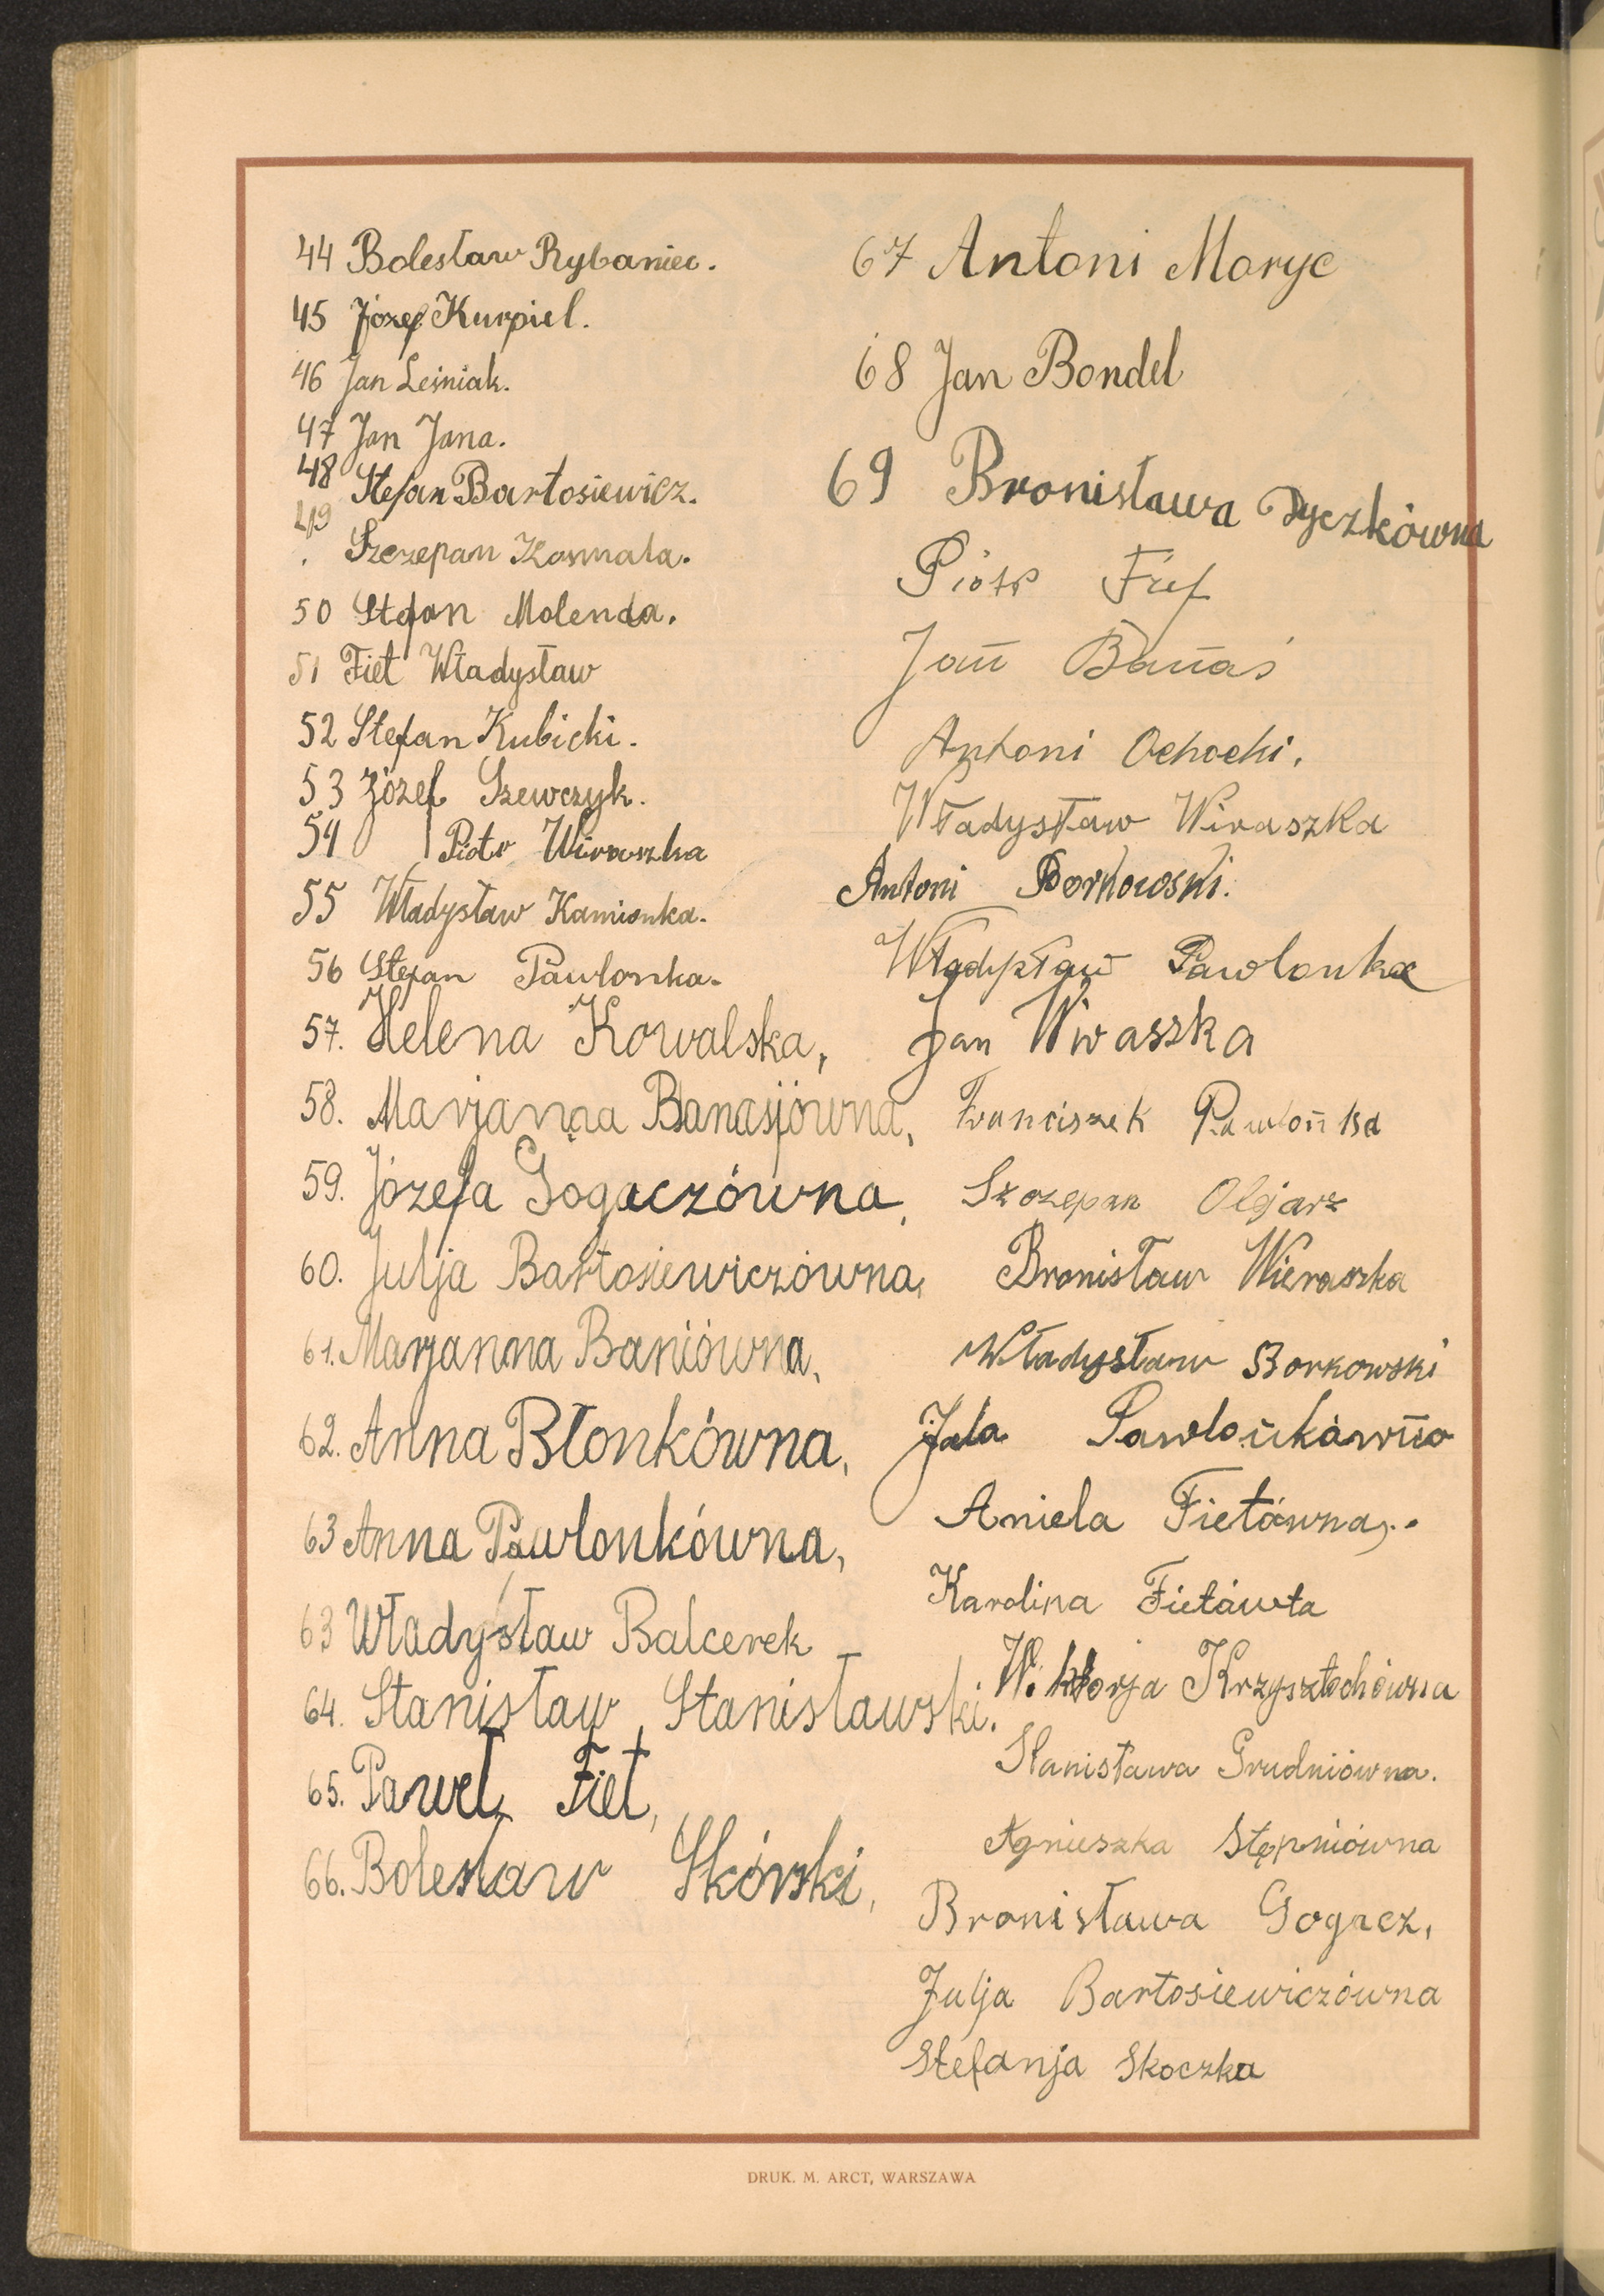 44 Bolesław Rybaniec.
45 Józef Kurpiel.
46 Jan Leśniak.
47 Jan Jana.
48 Stefan Bartosiewicz.
49
Szczepan Kosmala.
50 Stefan Molenda.
51 Fiet Władysław
52 Stefan Kubicki.
53 Józef Szewczyk.
54 Piotr Wiraszka
55 Władysław Kamionka.
56 Stefan Pawlonka.
57. Helena Kowalska,
58. Marjanna Banasjówna,
59. Józefa Gogaczówna,
60. Julja Bartosiewiczówna,
61. Marjanna Baniówna,
62. Anna Błonkówna,
63 Anna Pawlonkówna,
63 Władysław Balcerek
64. Stanisław Stanisławski.
65. Paweł Fiet,
66. Bolesław Skórski,
67 Antoni Moryc
68 Jan Bondel
69 Bronisława Dyczkówna
Piotr
Jan Banaś
Antoni Ochocki.
Władysław Wiraszka
Antoni Borkowski.
Władysław Pawlonka
Jan Wiwaszka
Franciszek Pawlonka
Szczepan Olejarz
Bronisław Wieraszka
Władysław Borkowski
Pawlonkówna
Aniela Fietówna,.
Karolina Fietówta
Wiktorja Krzysztochówna
Stanisława Grudniówna.
Agnieszka Stępniówna
Bronisława Gogacz,
Julja Bartosiewiczówna
Stefanja Skoczka
DRUK. M. ARCT, WARSZAWA